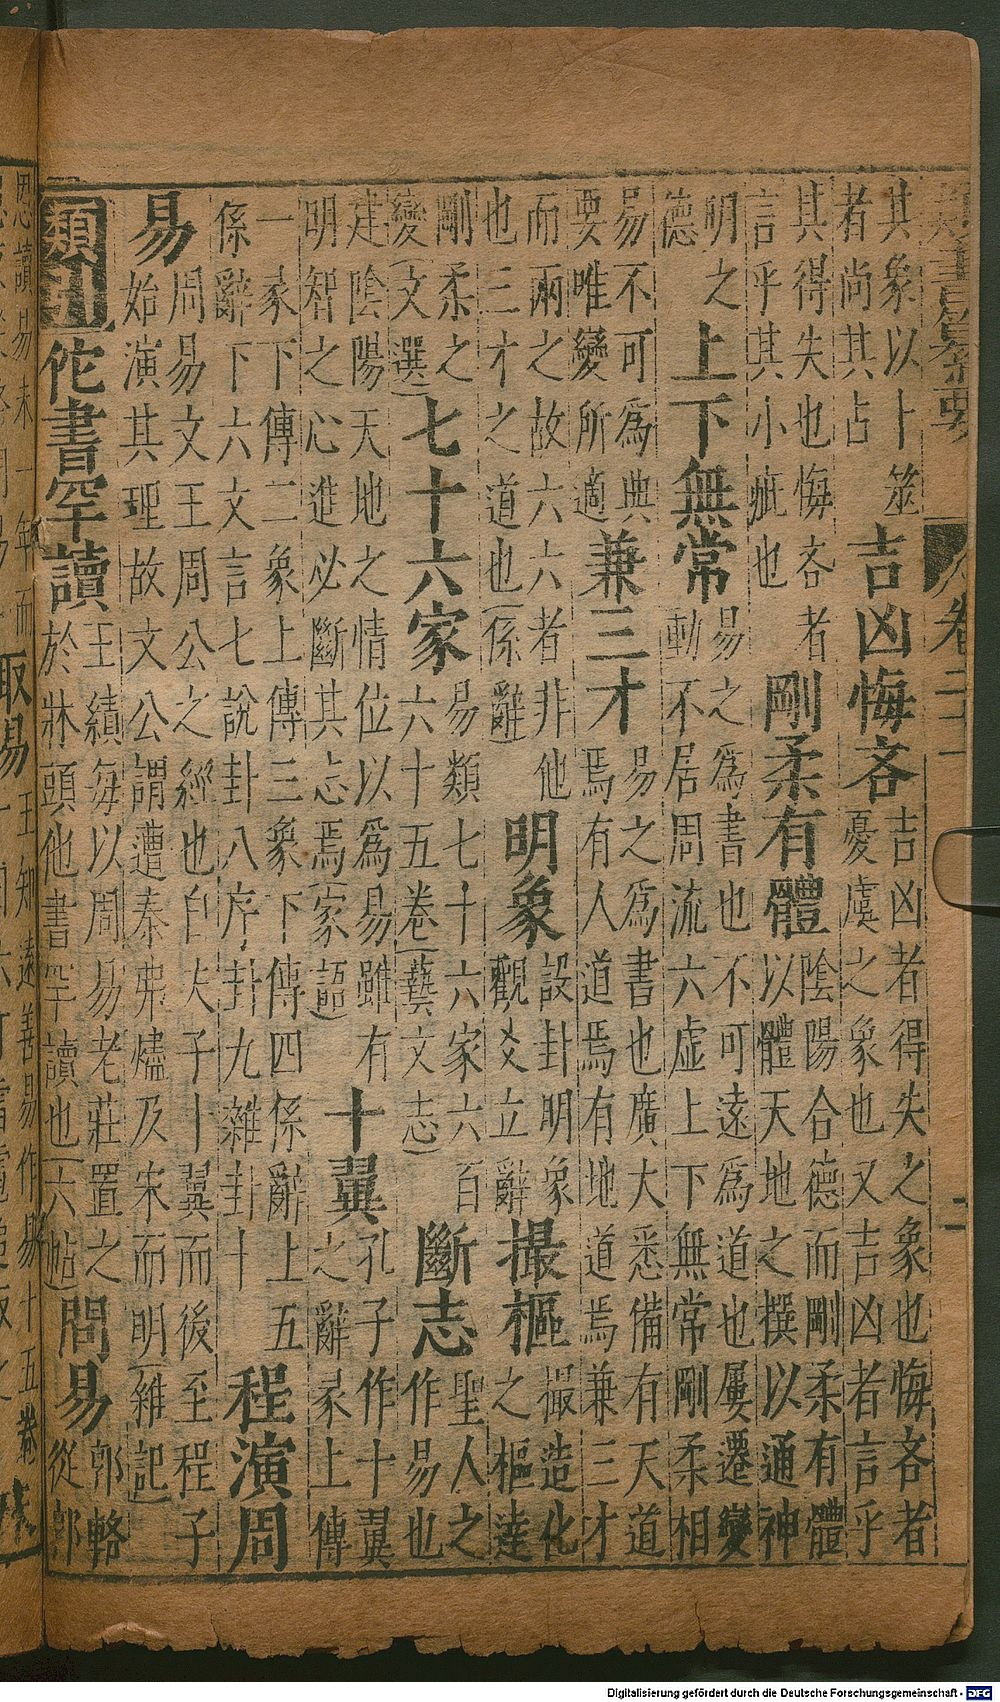 卷二
其象以卜筮
者尚其占
吉凶悔吝
吉凶者得失之象也悔吝者
憂虞之象也又吉凶者言乎
其得失也悔吝者
言乎其小疵也
剛柔有體
陰陽合德而剛柔有體
以體天地之撰以通神
明之
德
上下無常
易之為書也不可遠為道也屢遷變
動不居周流六虛上下無常剛柔相
易不可為典
要唯變所適
兼三才
易之為書也廣大悉備有天道
焉有人道焉有地道焉兼三才
而兩之故六六者非他
也三才之道也(係辭)
明象
設卦明象
觀爻立辭
撮樞
撮造化
之樞逹
剛柔之
變(文選)
七十六家
易類七十六家六百
六十五卷(藝文志)
斷志
聖人之
作易也
建陰陽天地之情位以為易雖有
明智之心進必斷其志焉(家語)
十翼
孔子作十翼
之辭彖上傳
一彖下傳二象上傳三象下傳四係辭上五
係辭下六文言七說卦八序卦九雜卦十
程演周
易
周易文王周公之經也自夫子十翼而後至程子
始演其理故文公謂遭秦弗燼及宋而明(雜記)
類
佗書罕讀
王績每以周易老莊置之
於牀頭他書罕讀也(六帖)
問易
郭輅
從郭
思讀易未一年而
取易
王知遠善易作易十五卷
Digitalisierung gefördert durch die Deutsche Forschungsgemeinschaft - DFG